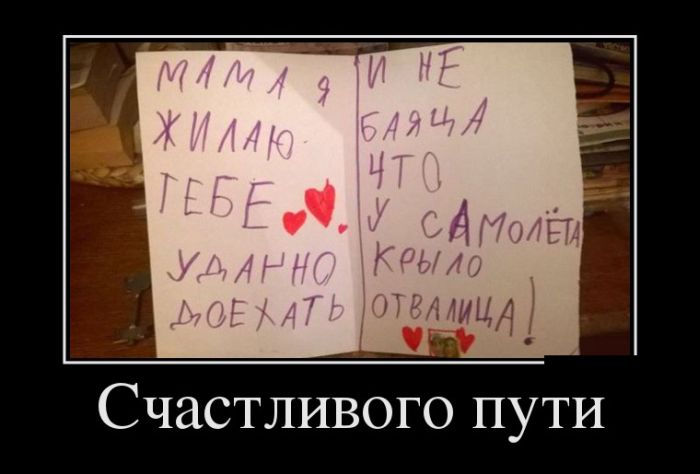 МАМА Я
ЖИЛАЮ
ТЕБЕ
УДАЧНО
ДОЕХАТЬ
И НЕ
БАЯЦА
ЧТО
У САМОЛЁТА
КРЫЛО
ОТВАЛИЦА!
Счастливого пути